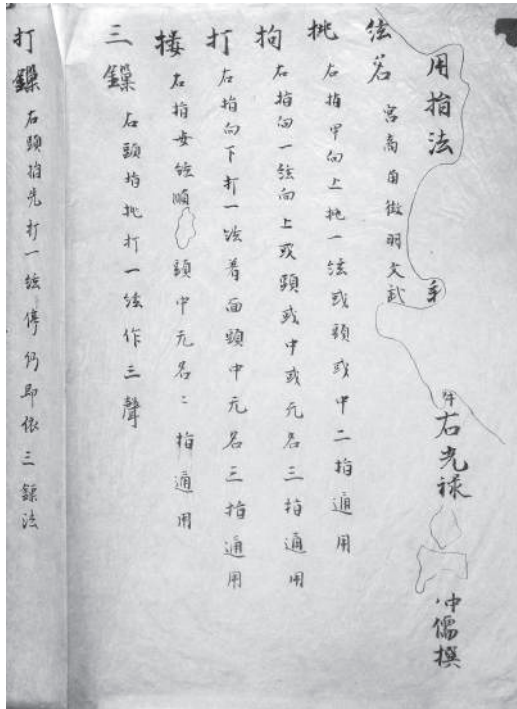 用指法 手 右光禄 冲儒撰
弦名 宮商角徵羽文武
挑 右指甲向上挑一弦或頭或中二指通用
拘 右指向一弦向上或頭或中或元名三指通用
打 右指向下打一弦着面頭中元名三指通用
搂 右指每弦順 頭中元名二指通用
三鏁 右頭指挑打一弦作三聲
打鏁 右頭指先打一弦停仍即依三鏁法